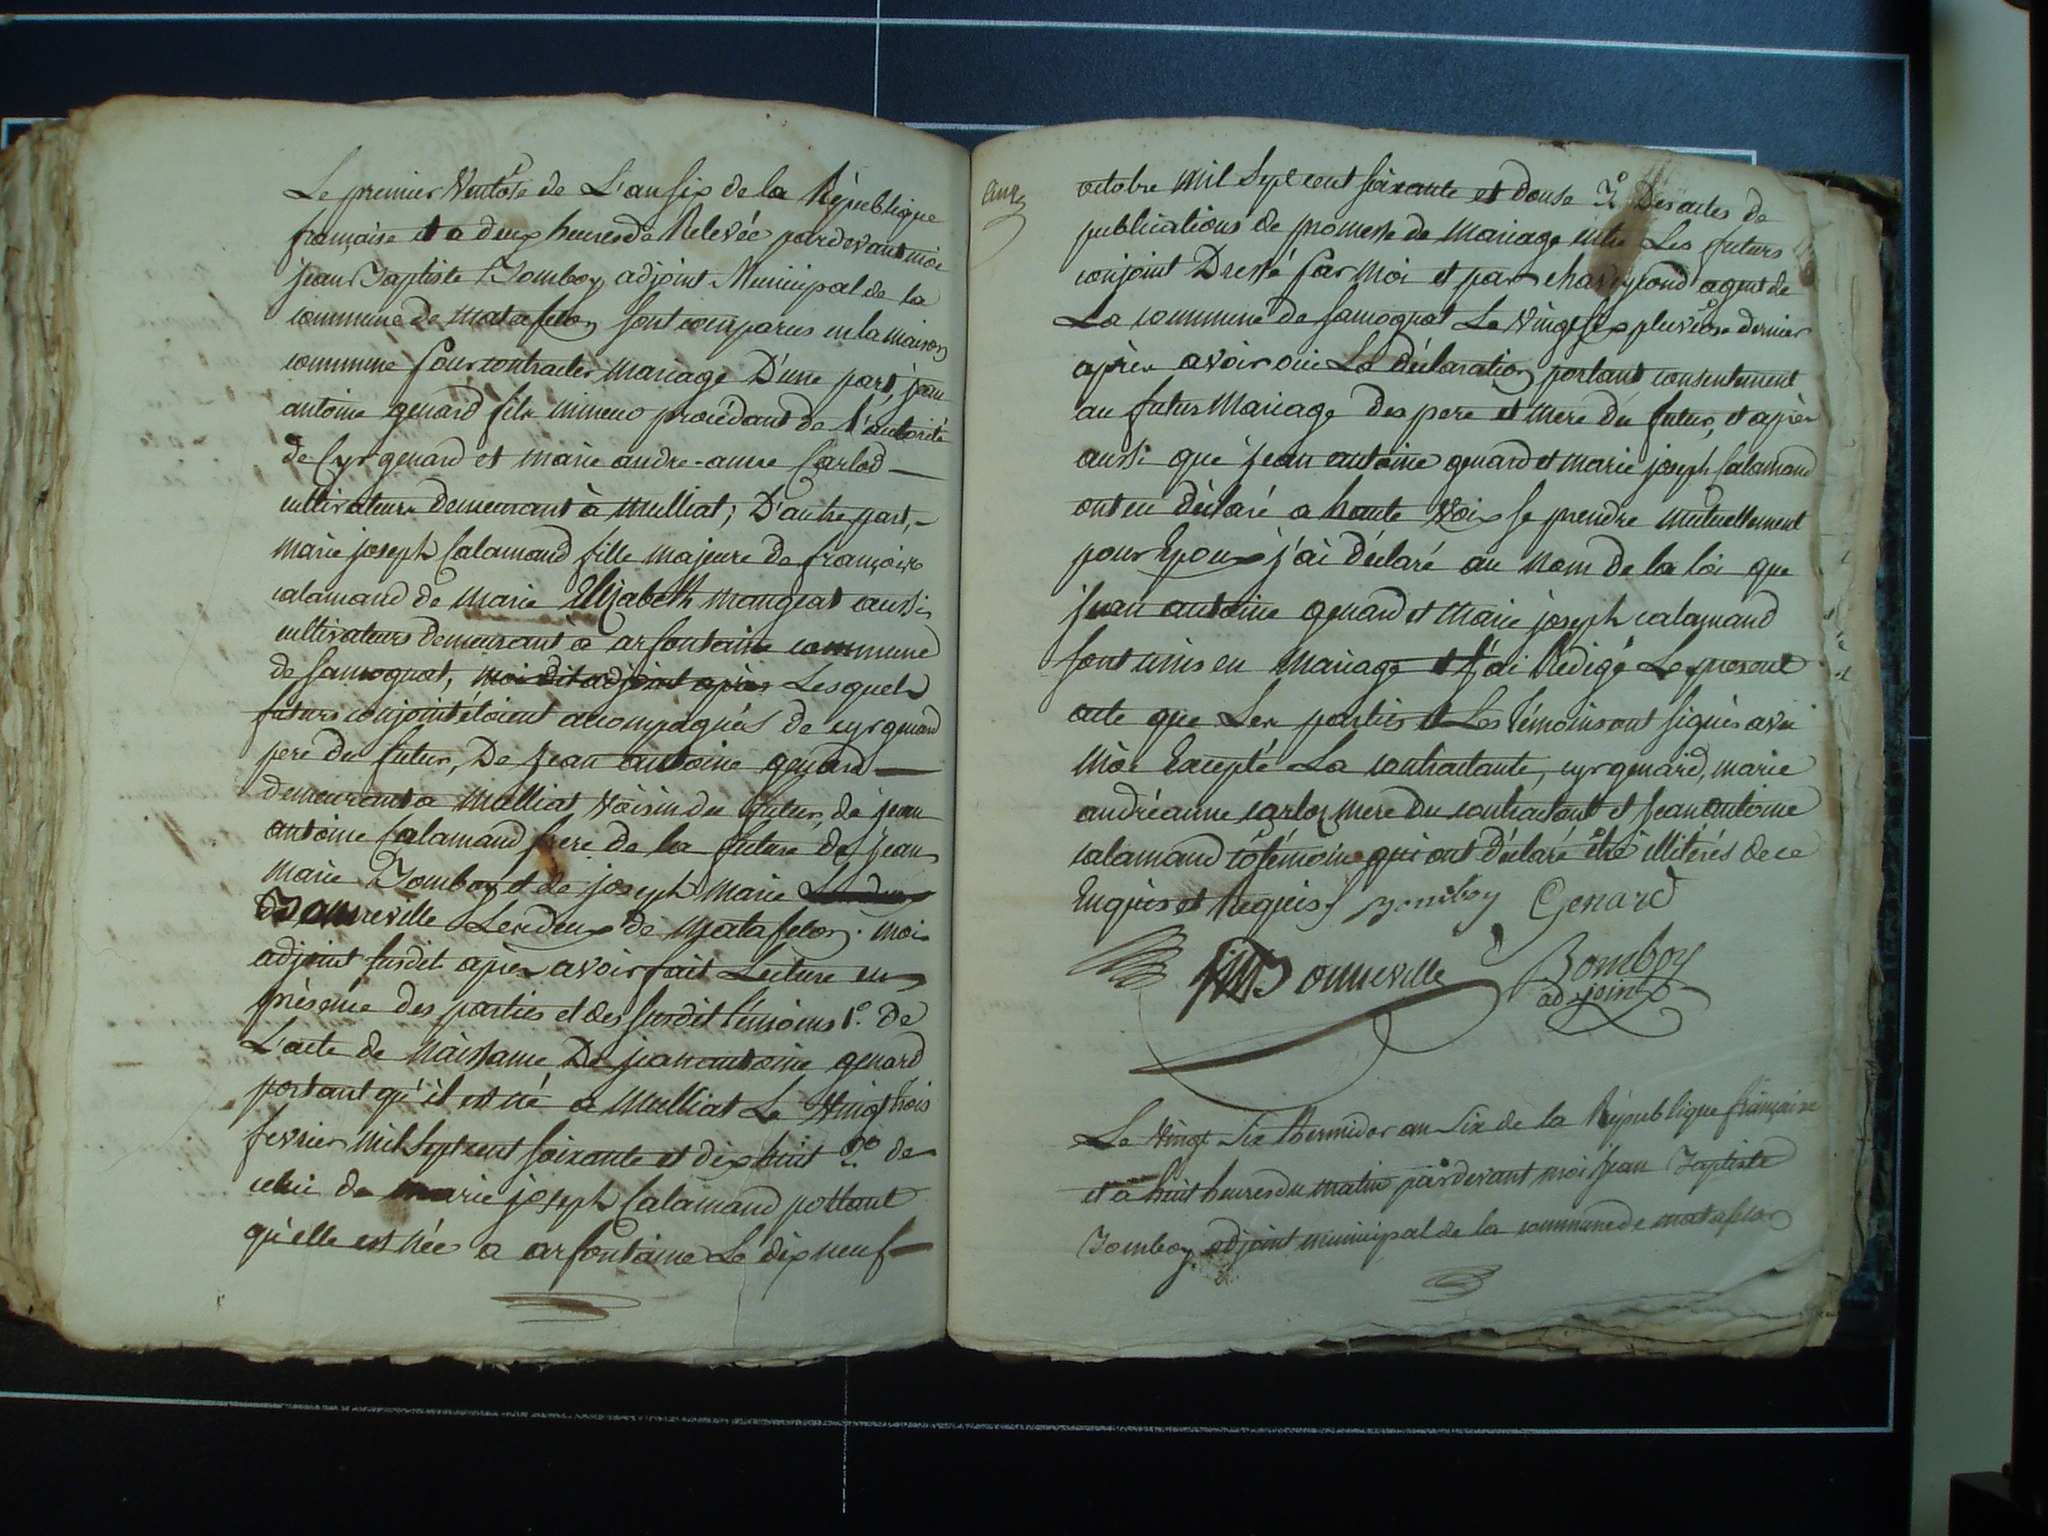 Le premier Ventôse de L'an six de la République
française et a deux heures de Relevée pardevant moi
jean Baptiste Bomboy adjoint Municipal de la
commune de Matafelon sont comparus en la maison
commune pour contracter mariage D'une part, jean
antoine genard fils mineur procédant de l'autorité
de Cyr genard et marie andre-anne Carlod
cultivateurs demeurant à Mulliat; D'autre part,
marie joseph Calamand fille majeure de françois
calamand de marie Elizabeth mangeat aussi
cultivateurs demeurant à arfontaine commune
de samognat, moi dit adjoint après Lesquels
futurs conjoint étoient accompagnés de cyr genard
pere du futur, De jean antoine genard
demeurant a Mulliat voisin du futur, de jean
antoine Calamand frere de la future de jean
marie Bomboy et de joseph marie
Bonneville Les deux de Matafelon. moi
adjoint susdit après avoir fait Lecture en
présence des parties et des susdit témoins 1º. de
L'acte de Naissance De jean antoine genard
portant qu'il est né a Mulliat Le Vingt trois
fevrier mil sept cent soixante et dix huit 2º de
celui de marie joseph Calamand portant
qu'elle est née a arfontaine Le dix neuf
octobre mil sept cent soixante et douse 3º Des actes de
publications de promesse de mariage entre Les futurs
conjoint Dressé par moi et par agent de
La commune de samognat Le Vingt six pluviose dernier
après avoir oui La déclaration portant consentement
au futur Mariage des pere et mere du futur, et après
aussi que jean antoine genard et marie joseph Calamand
ont eu déclaré a haute Voix se prendre mutuellement
pour Epoux j'ai déclaré au Nom de la loi que
jean antoine genard et marie joseph calamand
sont unis en Mariage et j'ai Redigé Le present
acte que Les parties et Les témoins ont signés avec
Moi Excepté La contractante, cyr genard, marie
andréanne carloz mere du contractant et jean antoine
calamand témoins qui ont déclaré être illitérés de ce
Enquis et Requis. Bomboy Genard
Bonneville Bomboy
adjoint
Le Vingt six thermidor an six de la République française
et a huit heures du matin pardevant moi jean Baptiste
Bomboy adjoint municipal de la commune de matafelon